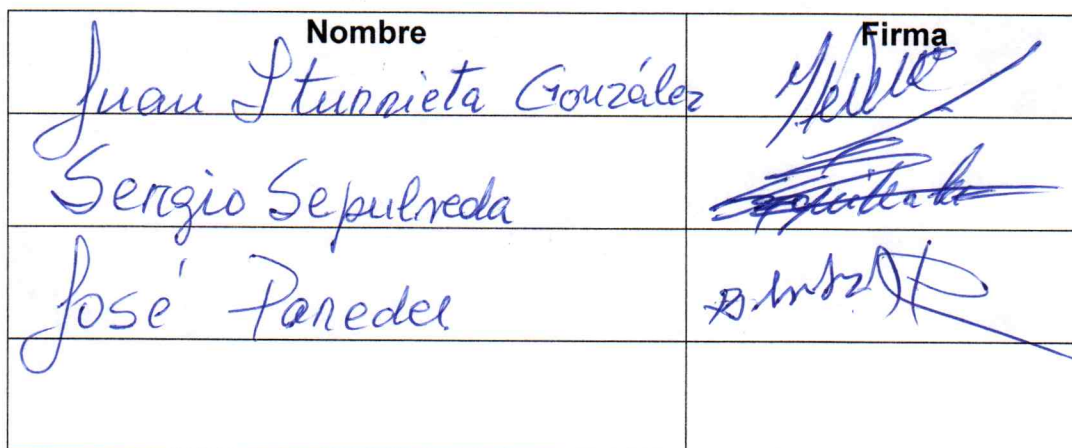 Nombre Firma
Juan Iturrieta González
Sergio Sepulveda
José Paredes